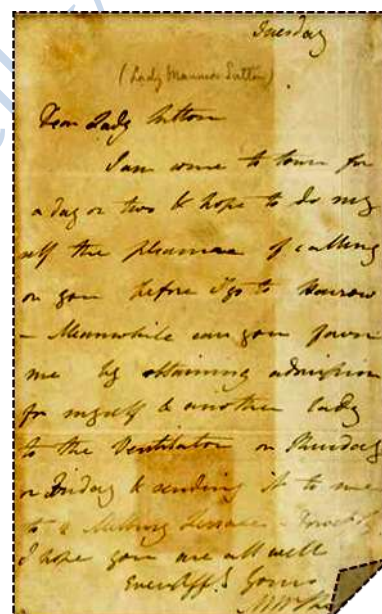 Tuesday
(Lady Manners Sutton)
Dear Lady Sutton
I am come to town for
a day or two & hope to do my
self the pleasure of calling
on you before I go to Harrow
- Meanwhile can you favor
me by obtaining admission
for myself & another lady
to the Ventilator on Thursday
or Friday & sending it to me
to
I hope you are all well
Yours